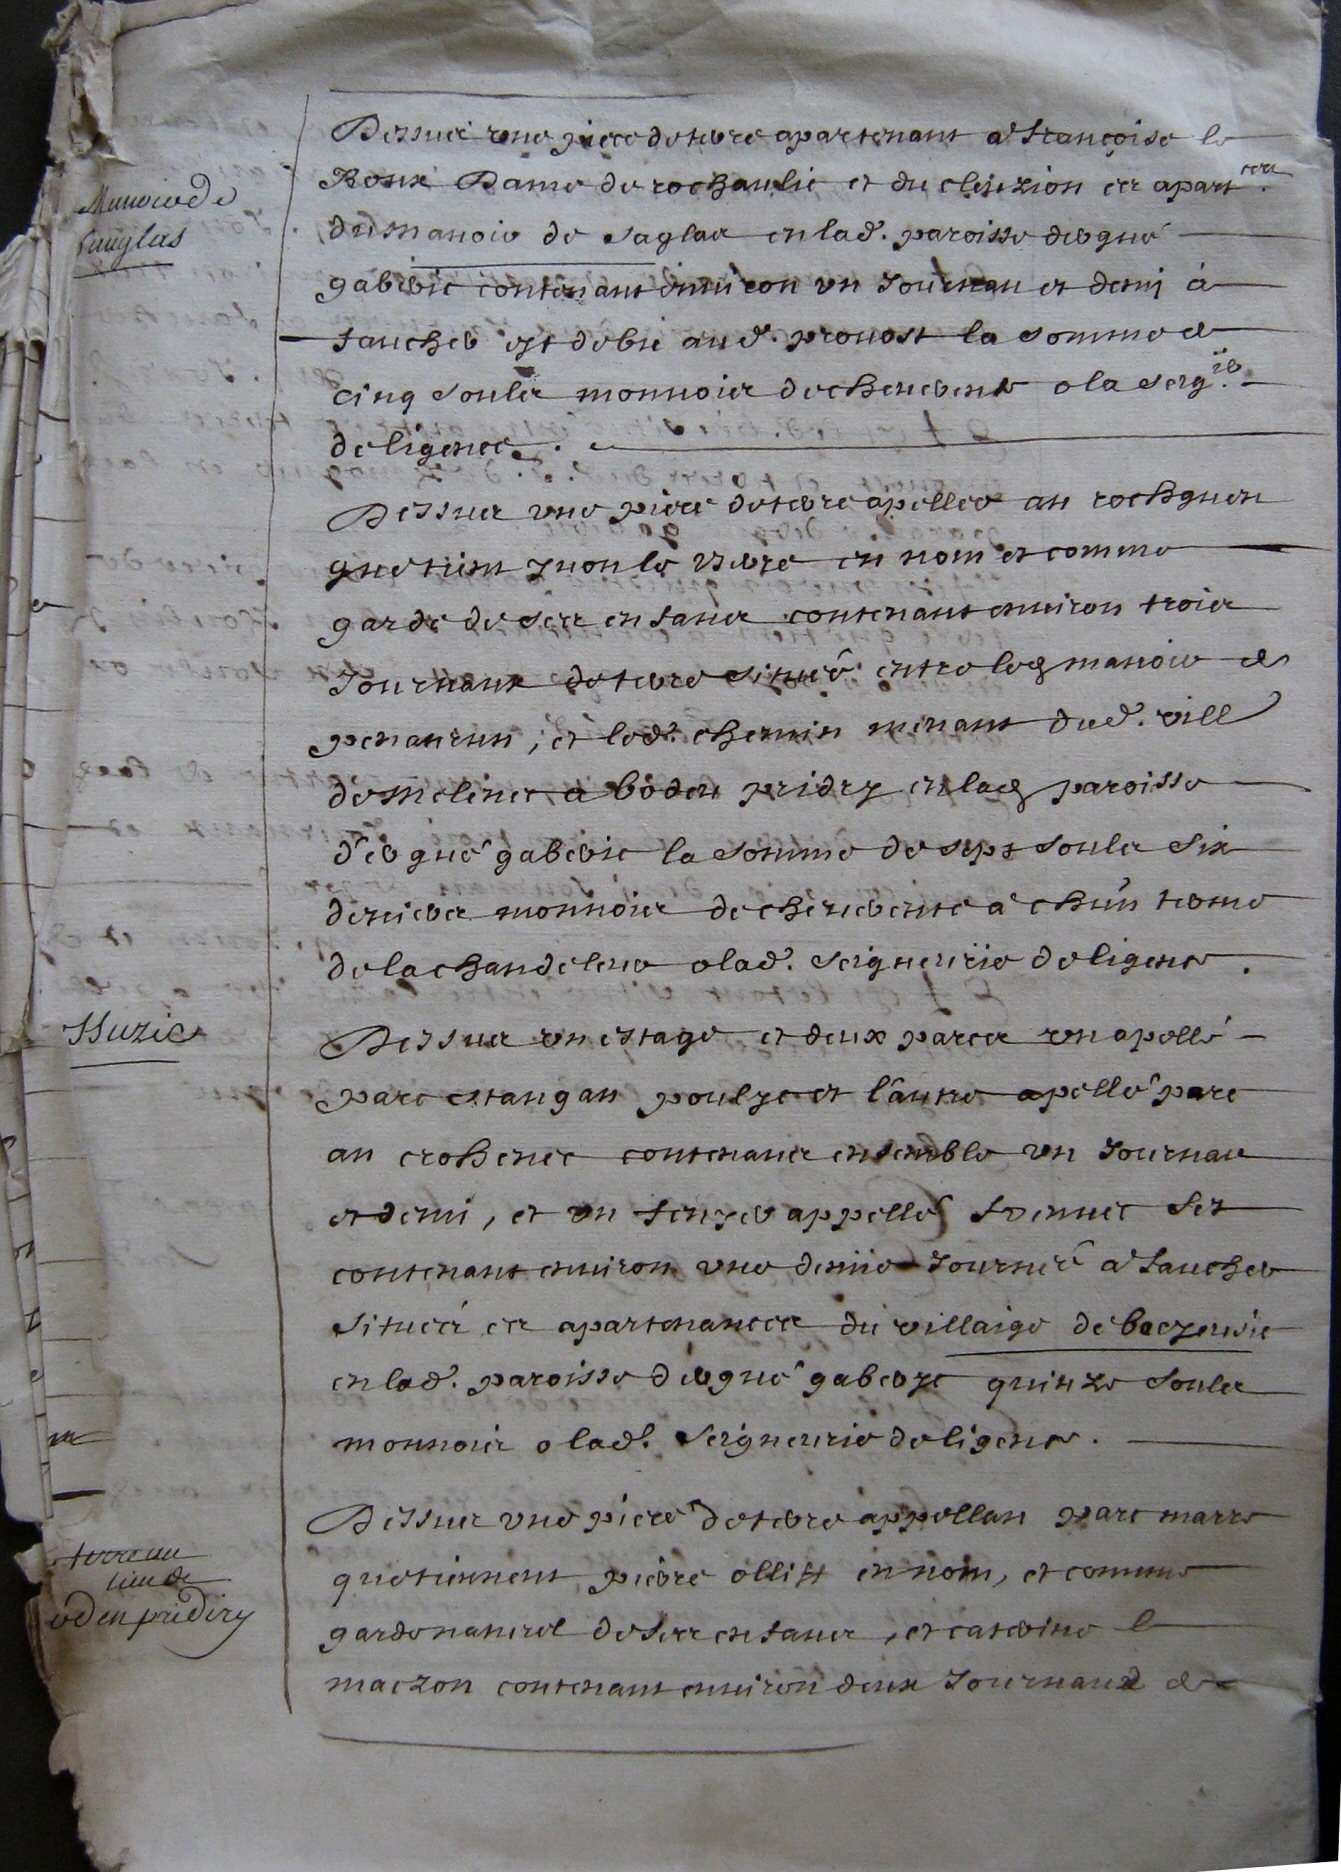 Dessur une piece de terre apartenant a françoise le
Roux Dame de rochaulic et du cleuzion es apart ces.
Manoir de
du manoir de saglas en lad. paroisse d'ergué
gaberic contenant environ un Journau et demi à
faucher est debu aud. provost la somme de
cinq soulz monnoie de chenevente o la seig rie
de ligence.
Dessur une piece de terre apellee an rochguen
que tient yvon le vierc en nom et comme
garde de ses enfans contenant environ trois
Journaux de terre situee entre led manoir de
penanrun, et led. chemin menant dud. vill
de melenec a boden pridiry en lad paroisse
d'ergué gaberic la somme de sept soulz six
deniers monnoie de chenevente a chun terme
de la chandeleur o lad. seigneurie de ligence.
Dessur un estage et deux parcs un apellé
parc estangan poulze et l'autre apellé parc
an crohenec contenans ensemble un Journau
et demi, et un appellé
contenant environ une demie Journée a faucher
situés es apartenances du villaige de
en lad. paroisse d'ergué gaberyc quinze soulz
monnoie o lad. seigneurie de ligence.
Dessur une piece de terre appellan parc marre
terre au
lieu de
que tiennent pierre ollist en nom, et comme
oden pridiry
garde naturel de ses enfans, et caterine le
maczon contenant environ deux Journaux de